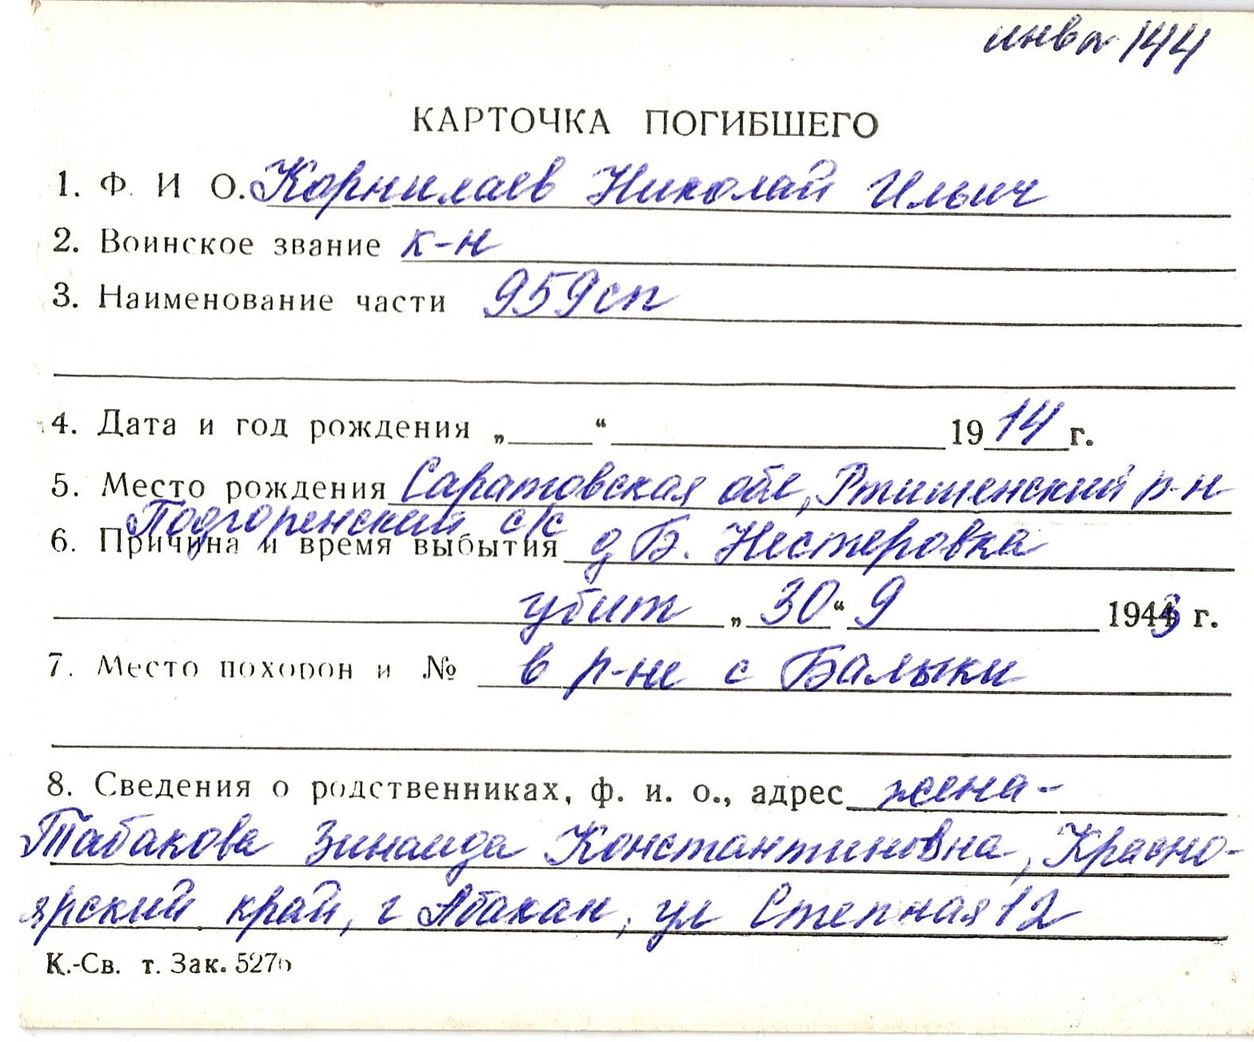 инв № 144
КАРТОЧКА ПОГИБШЕГО
1. Ф И О. Корнилаев Николай Ильич
2. Воинское звание к-н
3. Наименование части 959сп
4. Дата и год рождения „ “ 1914 г.
5. Место рождения Саратовская обл, Ртищенский р-н
Подгоренский с/с
6. Причина и время выбытия д Б. Нестеровка
убит „ 30 “ 9 1943 г.
7. Место похорон и № в р-не с Балыки
8. Сведения о родственниках, ф. и. о., адрес жена-
Табакова Зинаида Константиновна, Красно-
ярский край, г Абакан, ул Степная 12
К.-Св. т. Зак. 5276